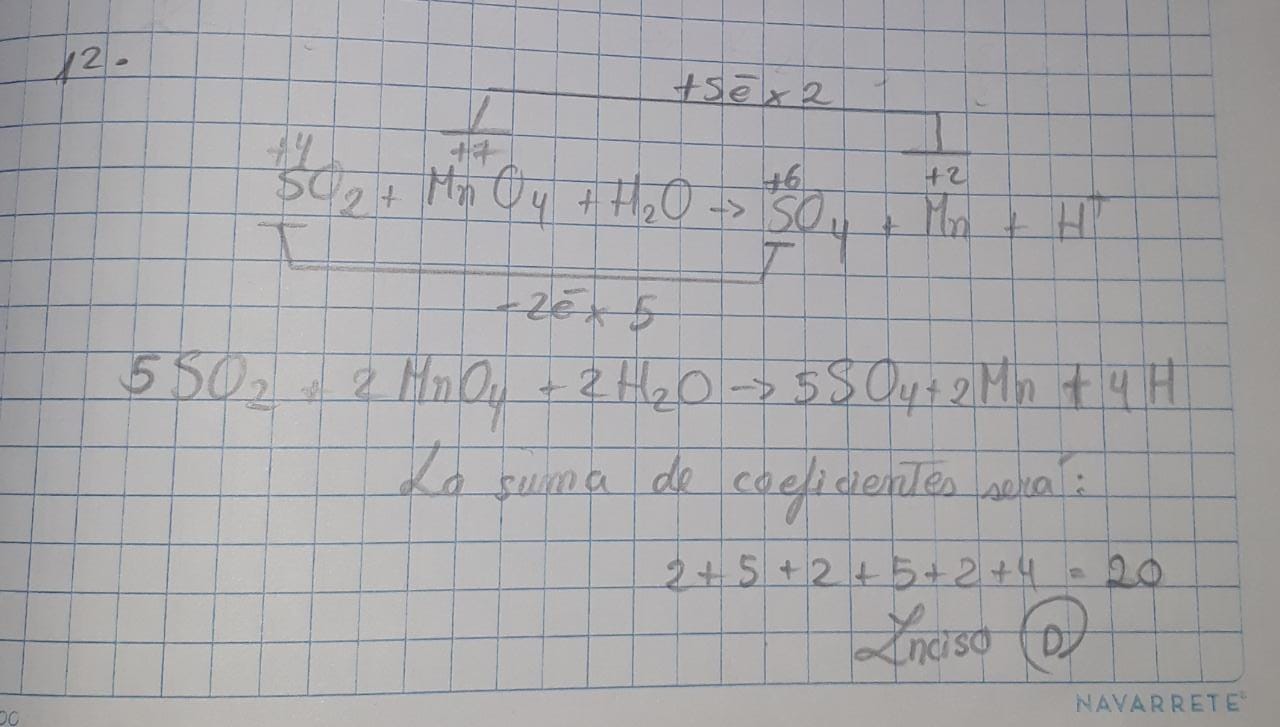 12.
+5ē x 2
+4 +7 +6 +2
SO2 + MnO4 + H2O -> SO4 + Mn + H+
-2ē x 5
5SO2 + 2MnO4 + 2H2O -> 5SO4 + 2Mn + 4H
La suma de coeficientes será:
2+5+2+5+2+4 = 20
Inciso D
NAVARRETE